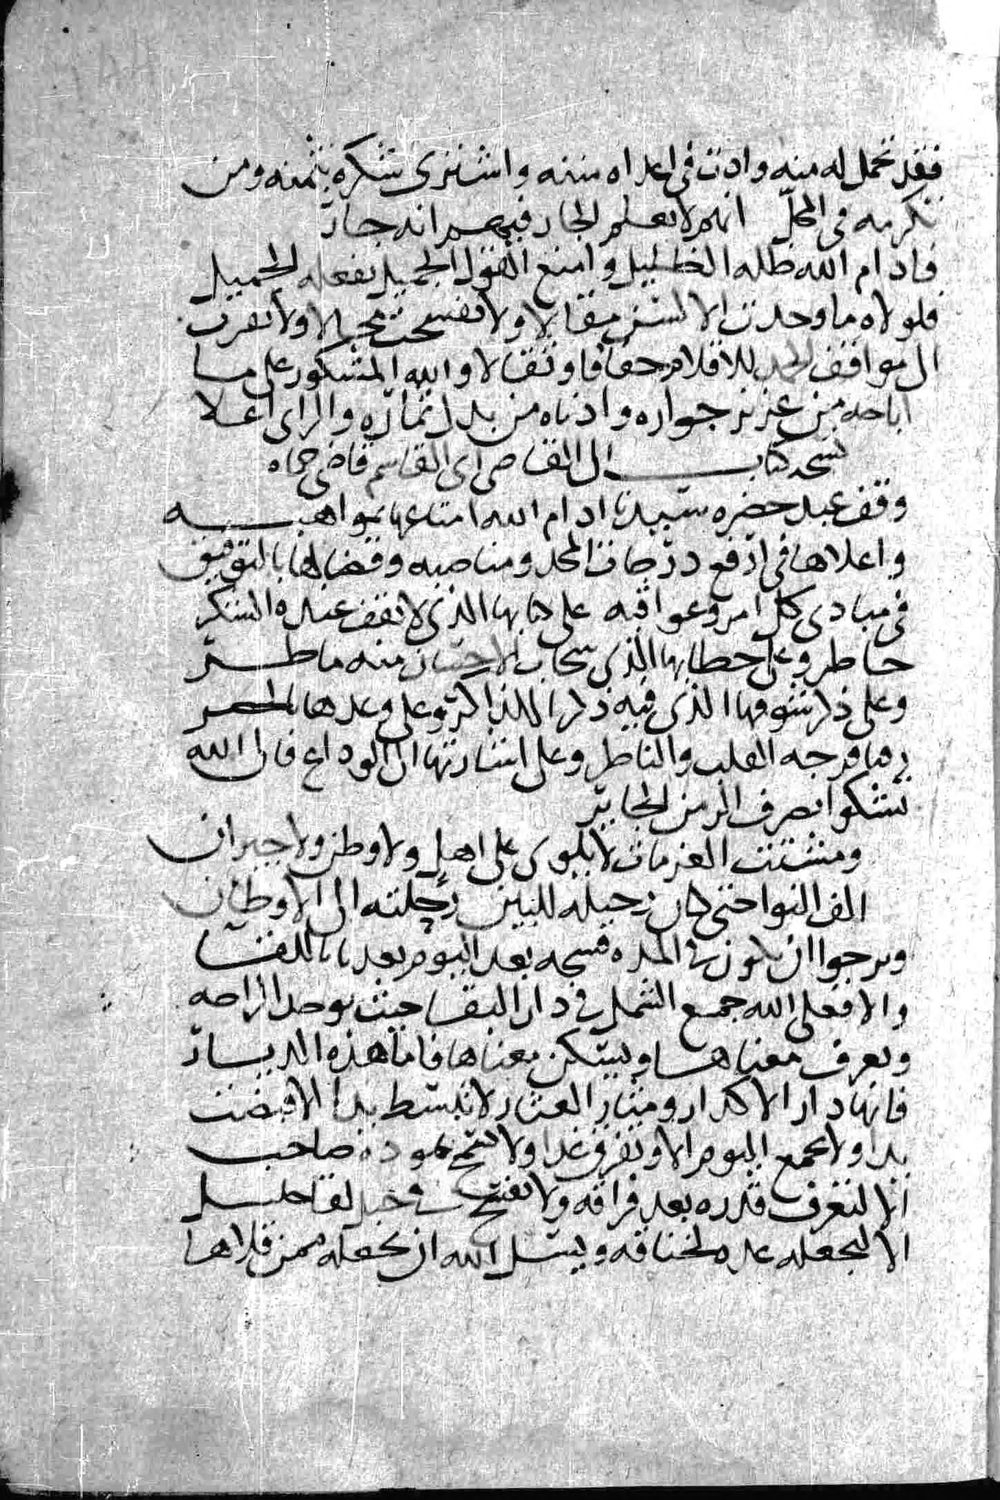 فقد تحمل له منه وادت في اعداه مننه واشتري شكره بثمنه ومن
تكرمه في المحل انهم لا تعلم الجار فيهم انه جار
فادام الله ظله الظليل وامتع القول الجميل بفعله الجميل
فلولاه ما وجدت الالسن مقالا ولا تفسحت مجالا ولا نفرت
الى مواقف الحمد للاقلام خفافا وثقالا والله المشكور على ما
اباحه من عزيز جواره وادناه من بدل ثماره والراى اعلا
نسخه كتاب الى القاضى ابى القاسم قاضى حماه
وقف عبد حضره سيدنا ادام الله امتاعها بمواهبه
واعلاها في ارفع درجات المجد ومناصبه وقضا لها بالتوفيق
في مبادى كل امر وعواقبه على كتابها الذى لا يقف عنده الشكر
خاطر وعلى خطابها الذى سحاب الاحسان منه ماطر
وعلى ذكر شوقها الذى فيه ذكرا للذاكر وعلى وعدها
فرجه القلب والناظر وعلى اشارتها الى الوداع فالى الله
نشكوا تصرف الزمن الجاير
ومشتت العزمات لا يلوى على اهل ولا وطن ولا جيران
الف النوا حتى كان رحيله للبين رحلته الى الاوطان
ويرجوا ان يكون في المده فسحه بعد اليوم بعدها للقا
والا فعلى الله جمع الشمل في دار البقا حيث توجد الراحه
ويعرف معناها ويسكن مغناها فاما هذه الديار
فانها دار الاكدار ومثار العثار لا تبسط يدا الا قبضت
يدا ولا تجمع اليوم الا وتفرق غدا ولا تسمح بموده صاحب
الا لتعرف قدره بعد فراقه ولا تفسح في حبل لقا خليل
الا لتجعله عده لخناقه ويسئل الله ان يجعله ممن قلاها